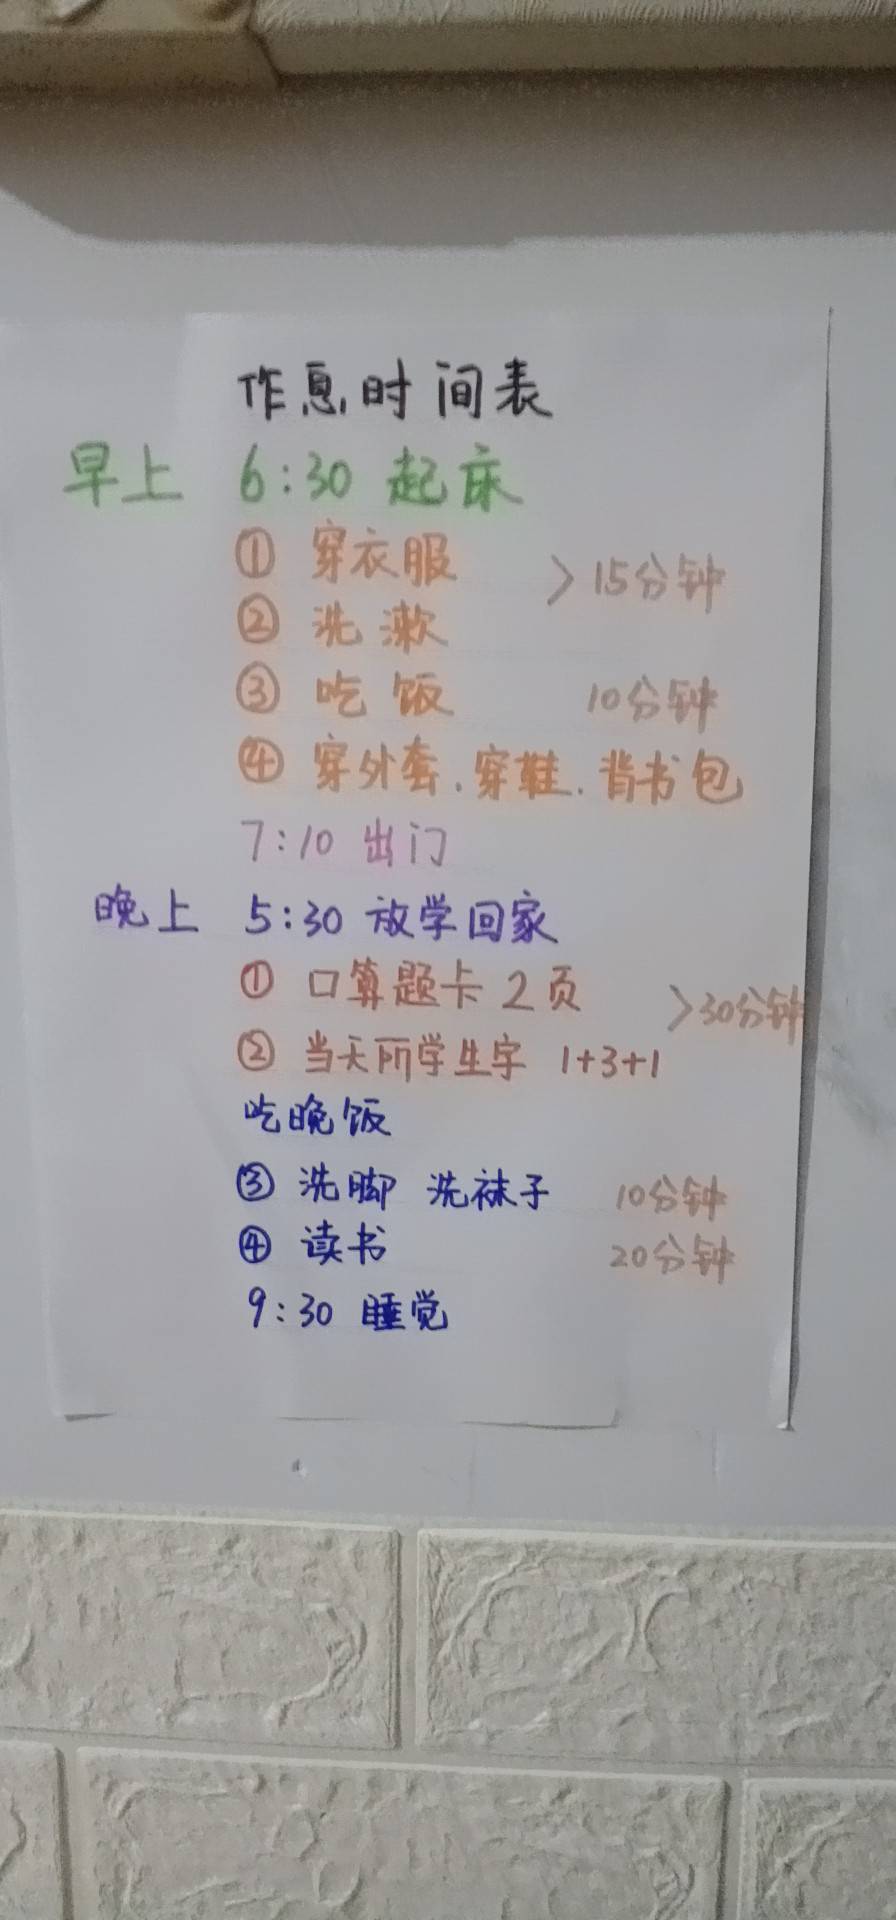 作息时间表
早上 6:30 起床
① 穿衣服
> 15分钟
② 洗漱
③ 吃饭 10分钟
④ 穿外套、穿鞋、背书包
7:10 出门
晚上 5:30 放学回家
① 口算题卡 2页
> 30分钟
② 当天所学生字 1+3+1
吃晚饭
③ 洗脚 洗袜子 10分钟
④ 读书 20分钟
9:30 睡觉